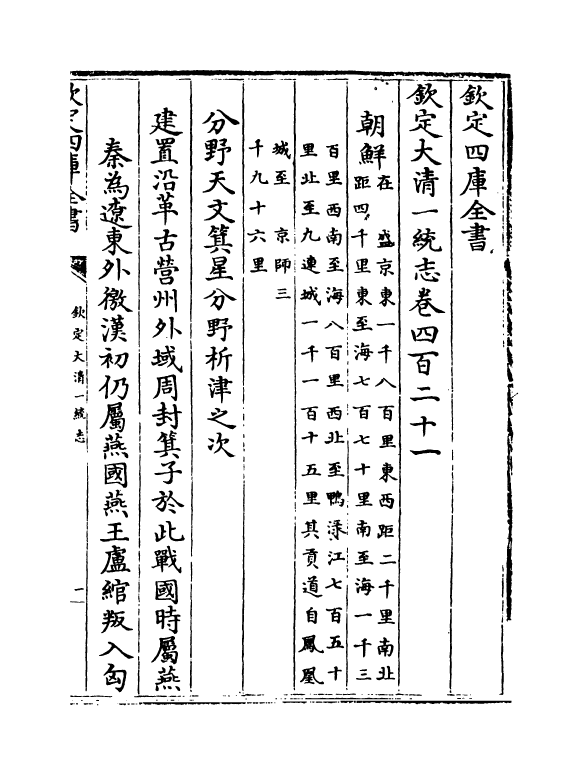 欽定四庫全書
欽定大清一統志卷四百二十一
朝鮮在 盛京東一千八百里東西距二千里南北
距四千里東至海七百七十里南至海一千三
百里西南至海八百里西北至鴨淥江七百五十
里北至九連城一千一百十五里其貢道自鳳凰
城至 京師三
千九十六里
分野天文箕星分野析津之次
建置沿革古營州外域周封箕子於此戰國時屬燕
秦為遼東外徼漢初仍屬燕國燕王盧綰叛入匈
欽定四庫全書
欽定大清一統志
一